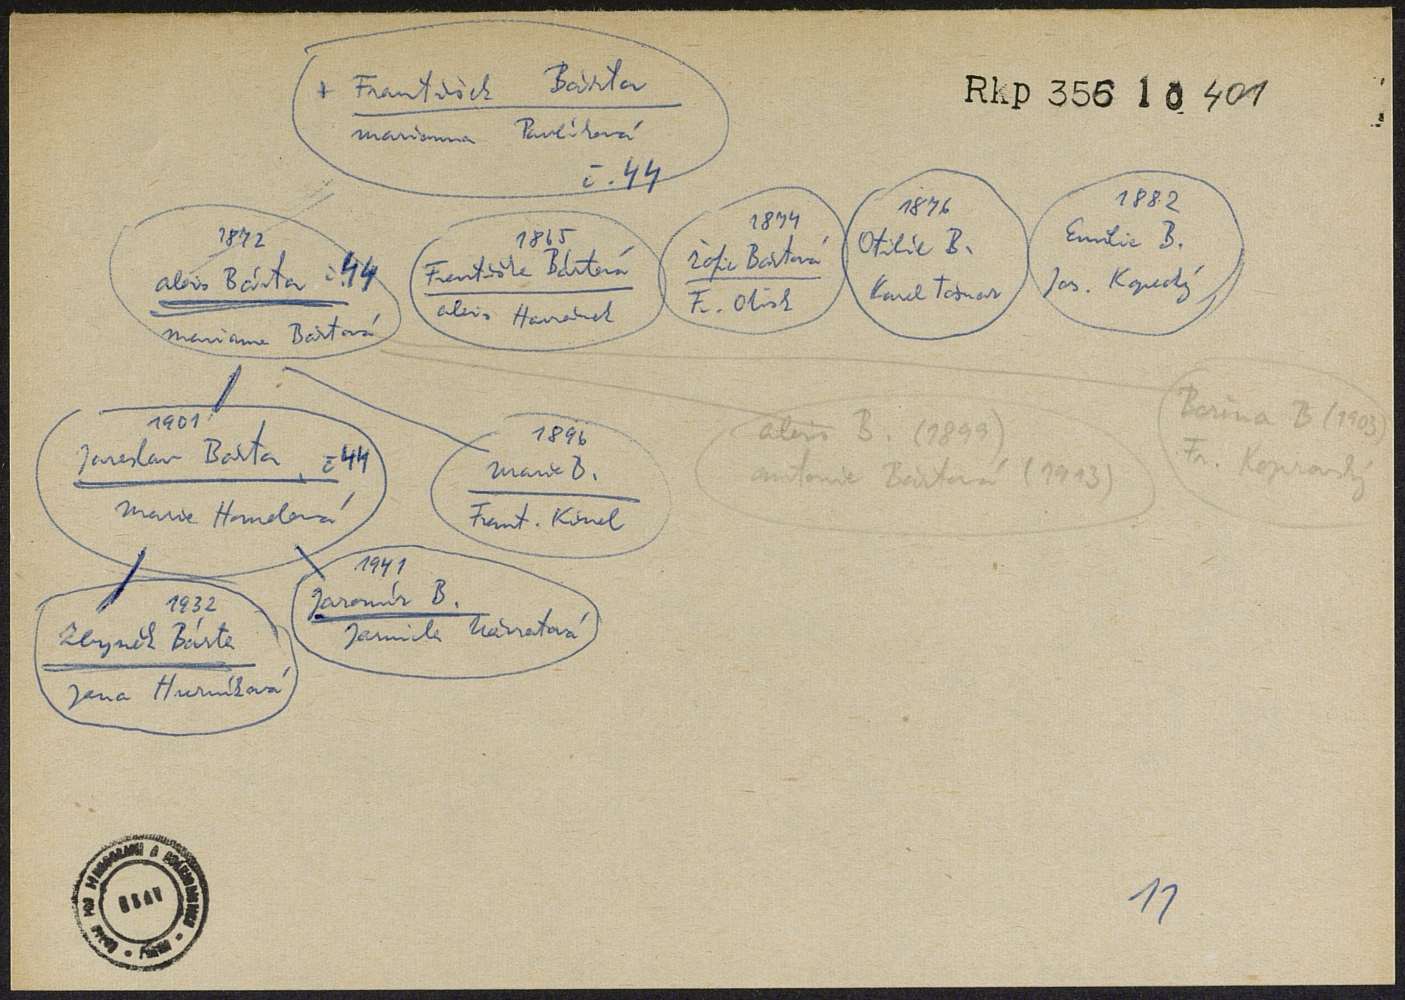 + František Bárta
Rkp 356 10 401
Marianna Pavlíková
č. 44
1872
Alois Bárta č. 44
Marianna Bártová
1865
Františka Bártová
Alois Havránek
1874
Žofie Bártová
Fr. Olšák
1876
Otilie B.
Karel
1882
Emilie B.
Jos. Kopecký
1901
Jaroslav Bárta č 44
Marie Homolová
1896
Marie B.
Frant. Kinel
Alois B. (1899)
Antonie Bártová (1913)
B (1903)
Fr. Koprovský
1932
Zbyněk Bárta
Jana Hurníková
1941
Jaromír B.
Jarmila
11